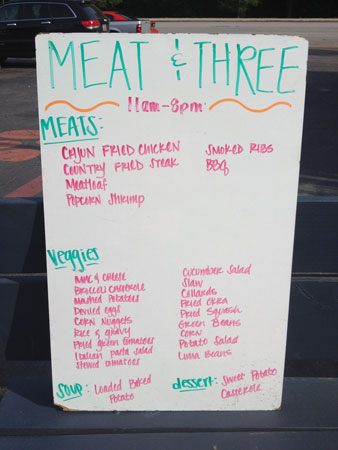 MEAT & THREE
11am-8pm
MEATS:
CAJUN FRIED CHICKEN
COUNTRY FRIED STEAK
Meatloaf
POPCORN SHRIMP
SMOKED RIBS
BBQ
Veggies
MAC & CHEESE
BROCCOLI CASSEROLE
MASHED POTATOES
Deviled eggs
CORN NUGGETS
RICE & GRAVY
FRIED green tomatoes
Italian pasta salad
stewed tomatoes
Cucumber Salad
Slaw
Collards
Fried Okra
Fried Squash
Green Beans
CORN
Potato Salad
Lima Beans
Soup: Loaded Baked
Potato
dessert: Sweet Potato
Casserole